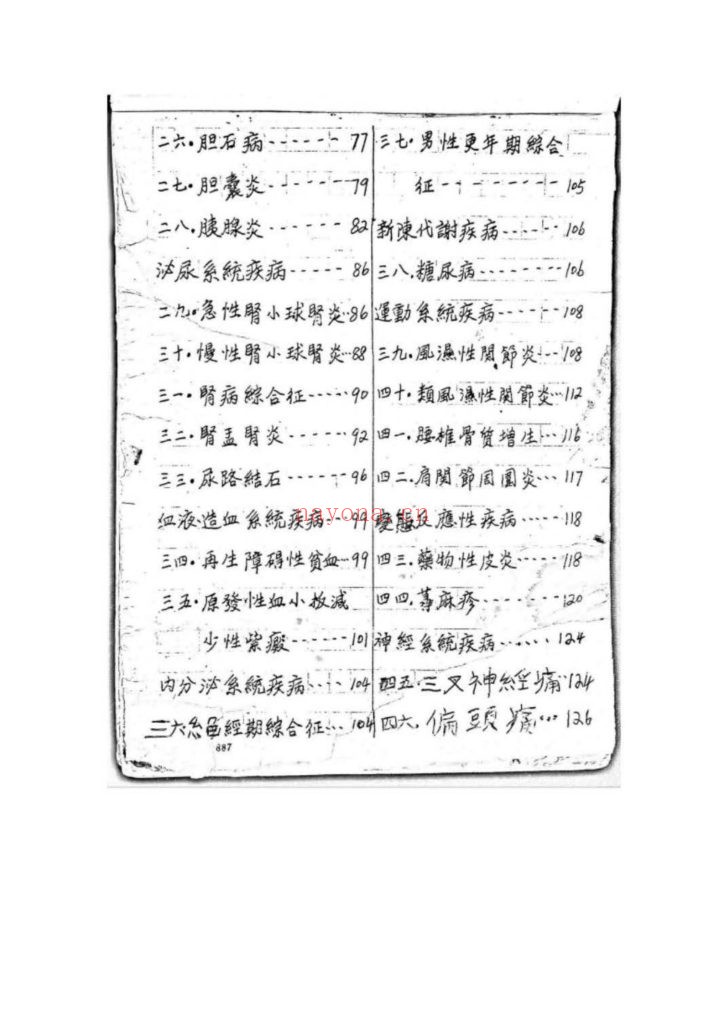 二六·胆石病------77
二七·胆囊炎------79
二八·胰腺炎------82
泌尿系統疾病-----86
二九·急性腎小球腎炎··86
三十·慢性腎小球腎炎··88
三一·腎病綜合征-----90
三二·腎盂腎炎-----92
三三·尿路結石-----96
血液造血系統疾病··99
三四·再生障碍性貧血··99
三五·原發性血小板減
少性紫癜------101
内分泌系統疾病----104
三六 絕經期綜合征···104
887
三七·男性更年期綜合
征---------105
新陳代謝疾病-----106
三八·糖尿病-------106
運動系統疾病-----108
三九·風濕性関節炎---108
四十·類風濕性関節炎··112
四一·腰椎骨質增生···116
四二·肩関節周圍炎···117
變態反應性疾病----118
四三·藥物性皮炎----118
四四·蕁麻疹------120
神經系統疾病······124
四五·三叉神經痛··124
四六·偏頭痛···126
nayona.cn